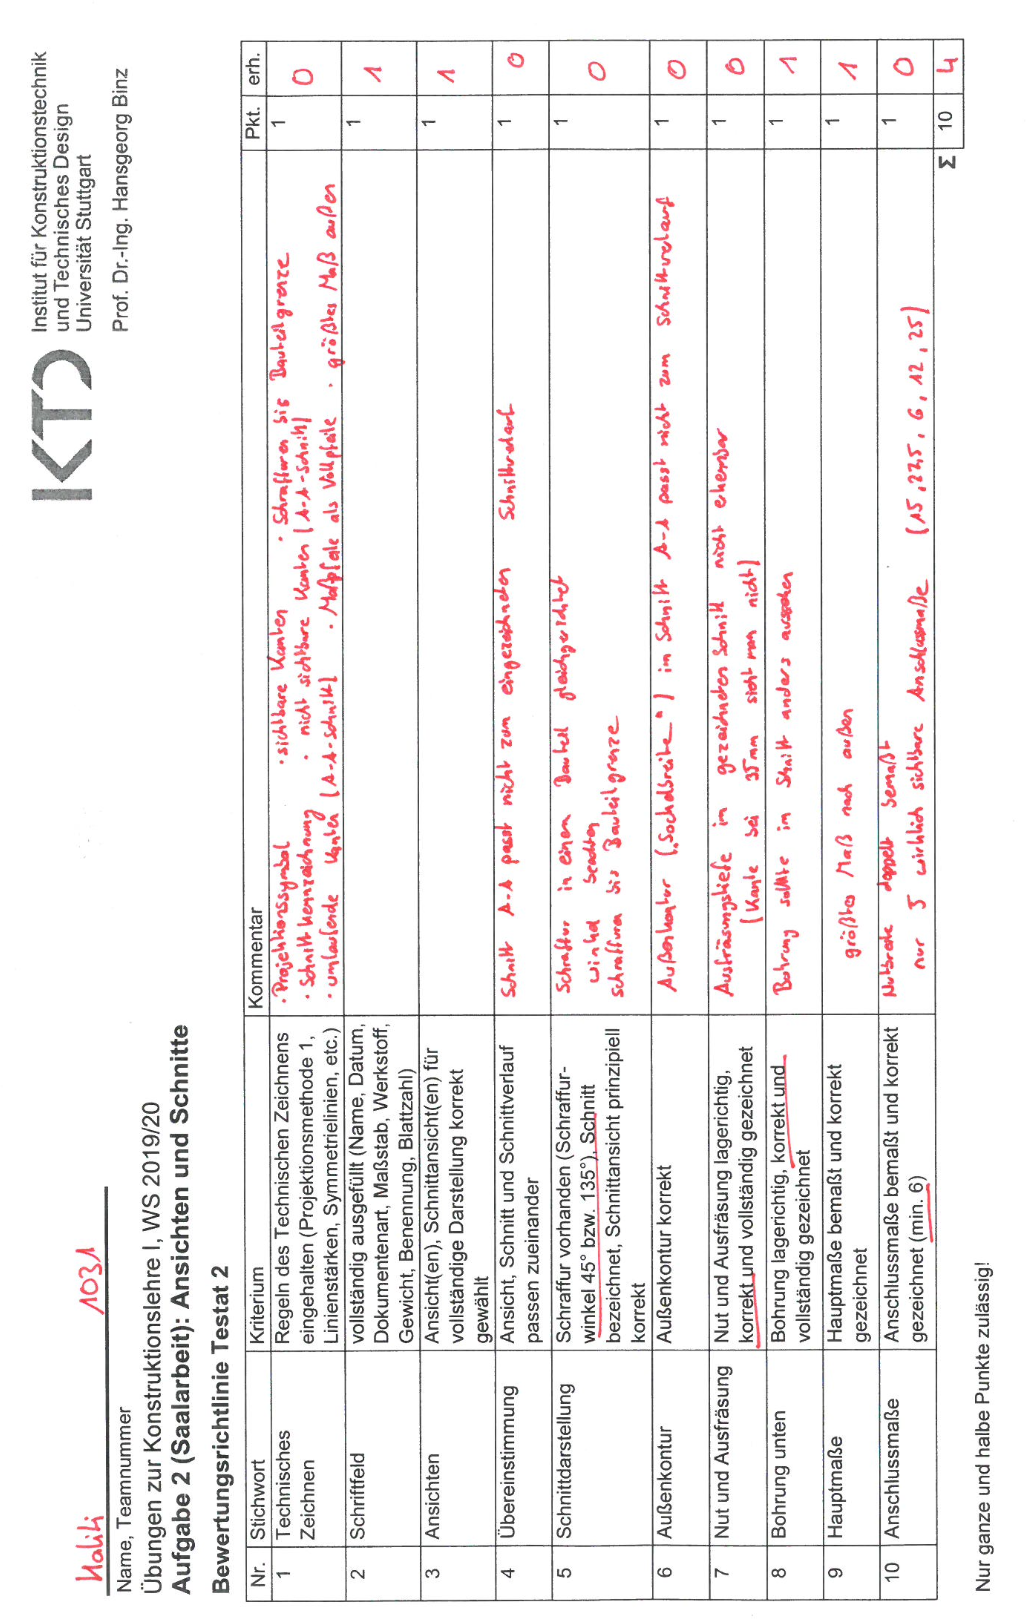 KTD
Institut für Konstruktionstechnik
und Technisches Design
Universität Stuttgart
Prof. Dr.-Ing. Hansgeorg Binz
1031
Name, Teamnummer
Übungen zur Konstruktionslehre I, WS 2019/20
Aufgabe 2 (Saalarbeit): Ansichten und Schnitte
Bewertungsrichtlinie Testat 2
Nr. Stichwort Kriterium Kommentar Pkt. erh.
1 Technisches Zeichnen
Regeln des Technischen Zeichnens
eingehalten (Projektionsmethode 1,
Linienstärken, Symmetrielinien, etc.)
· Projektionssymbol · sichtbare Kanten · Schraffuren bis Bauteilgrenze
· Schnittkennzeichnung · nicht sichtbare Kanten (A-A-Schnitt)
· umlaufende Kanten (A-A-Schnitt) · Maßpfeile als Vollpfeile · größtes Maß außen
1 0
2 Schriftfeld
vollständig ausgefüllt (Name, Datum,
Dokumentenart, Maßstab, Werkstoff,
Gewicht, Benennung, Blattzahl)
1 1
3 Ansichten
Ansicht(en), Schnittansicht(en) für
vollständige Darstellung korrekt
gewählt
1 1
4 Übereinstimmung
Ansicht, Schnitt und Schnittverlauf
passen zueinander
Schnitt A-A passt nicht zum eingezeichneten Schnittverlauf
1 0
5 Schnittdarstellung
Schraffur vorhanden (Schraffur-
winkel 45° bzw. 135°), Schnitt
bezeichnet, Schnittansicht prinzipiell
korrekt
Schraffur in einem Bauteil gleichgerichtet
Winkel beachten
Schraffuren bis Bauteilgrenze
1 0
6 Außenkontur
Außenkontur korrekt
Außenkontur („Sockelbreite") im Schnitt A-A passt nicht zum Schnittverlauf
1 0
7 Nut und Ausfräsung
Nut und Ausfräsung lagerichtig,
korrekt und vollständig gezeichnet
Ausfräsungstiefe im gezeichneten Schnitt nicht erkennbar
(Kante bei 35mm sieht man nicht)
1 0
8 Bohrung unten
Bohrung lagerichtig, korrekt und
vollständig gezeichnet
Bohrung sollte im Schnitt anders aussehen
1 1
9 Hauptmaße
Hauptmaße bemaßt und korrekt
gezeichnet
größtes Maß nach außen
1 1
10 Anschlussmaße
Anschlussmaße bemaßt und korrekt
gezeichnet (min. 6)
Nutbreite doppelt bemaßt
nur 5 wirklich sichtbare Anschlussmaße (15, 22,5, 6, 12, 25)
1 0
Σ 10 4
Nur ganze und halbe Punkte zulässig!